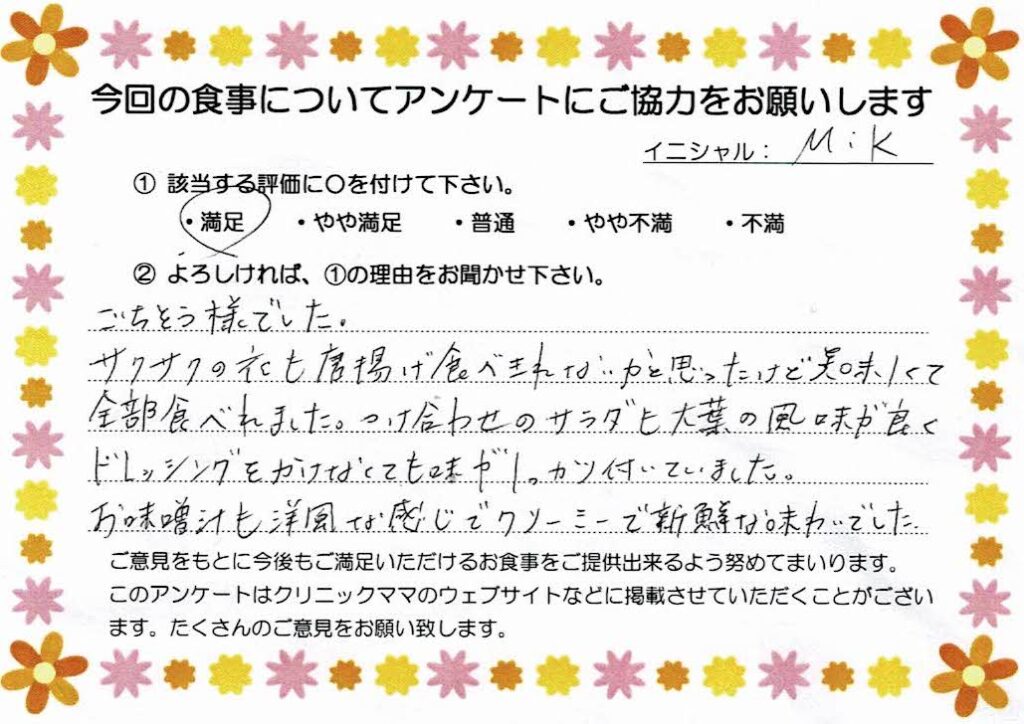 今回の食事についてアンケートにご協力をお願いします
イニシャル： M:K
① 該当する評価に〇を付けて下さい。
・満足 ・やや満足 ・普通 ・やや不満 ・不満
② よろしければ、①の理由をお聞かせ下さい。
ごちそう様でした。
サクサクの衣も唐揚げ食べきれないかと思ったけど美味しくて
全部食べれました。つけ合わせのサラダも大葉の風味が良く
ドレッシングをかけなくても味がしっかり付いていました。
お味噌汁も洋風な感じでクリーミーで新鮮な味わいでした
ご意見をもとに今後もご満足いただけるお食事をご提供出来るよう努めてまいります。
このアンケートはクリニックママのウェブサイトなどに掲載させていただくことがござい
ます。たくさんのご意見をお願い致します。